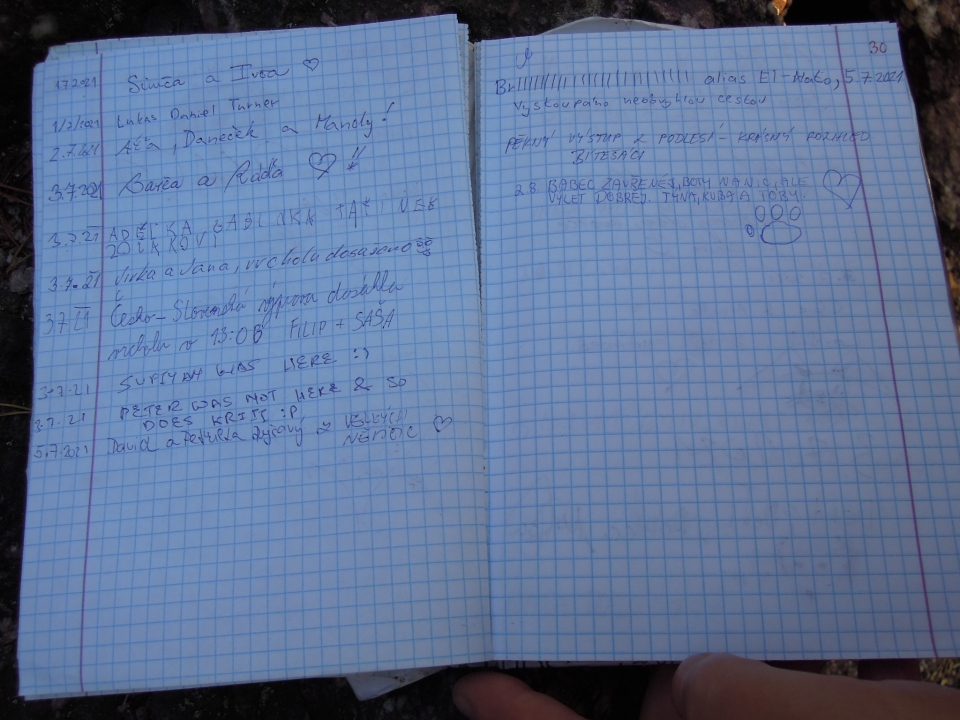 1.7.2021 Simča a Ivča
1/7/2021 Lukas Daniel Turner
2.7.21 Áťa, Daneček a Mandy!
3.7.2021 Barča a Raďa !!
3.7.21 ADÉLKA GABINKA TAŤ
3.7.21 Jirka a Jana, vrcholu dosaženo
3.7.21 Česko-Slovenská výprava dosáhla
vrcholu v 13:08 FILIP + SAŠA
3.7.21 SUFIYAN WAS HERE :)
3.7.21 PETER WAS NOT HERE & SO
DOES KRITS :P
5.7.2021 David a Petruška z VELKÝCH
NĚMČIC
30
alias El-Mako, 5.7.2021
Vystoupáno neobvyklou cestou
PĚKNÝ VÝSTUP Z PODLESÍ - KRÁSNÝ ROZHLED
BITEŠÁCI
2.8. BABEC ZAVŘENEJ, BOTY NANIC, ALE
VÝLET DOBREJ. TÝNA, KUBA A TOBY